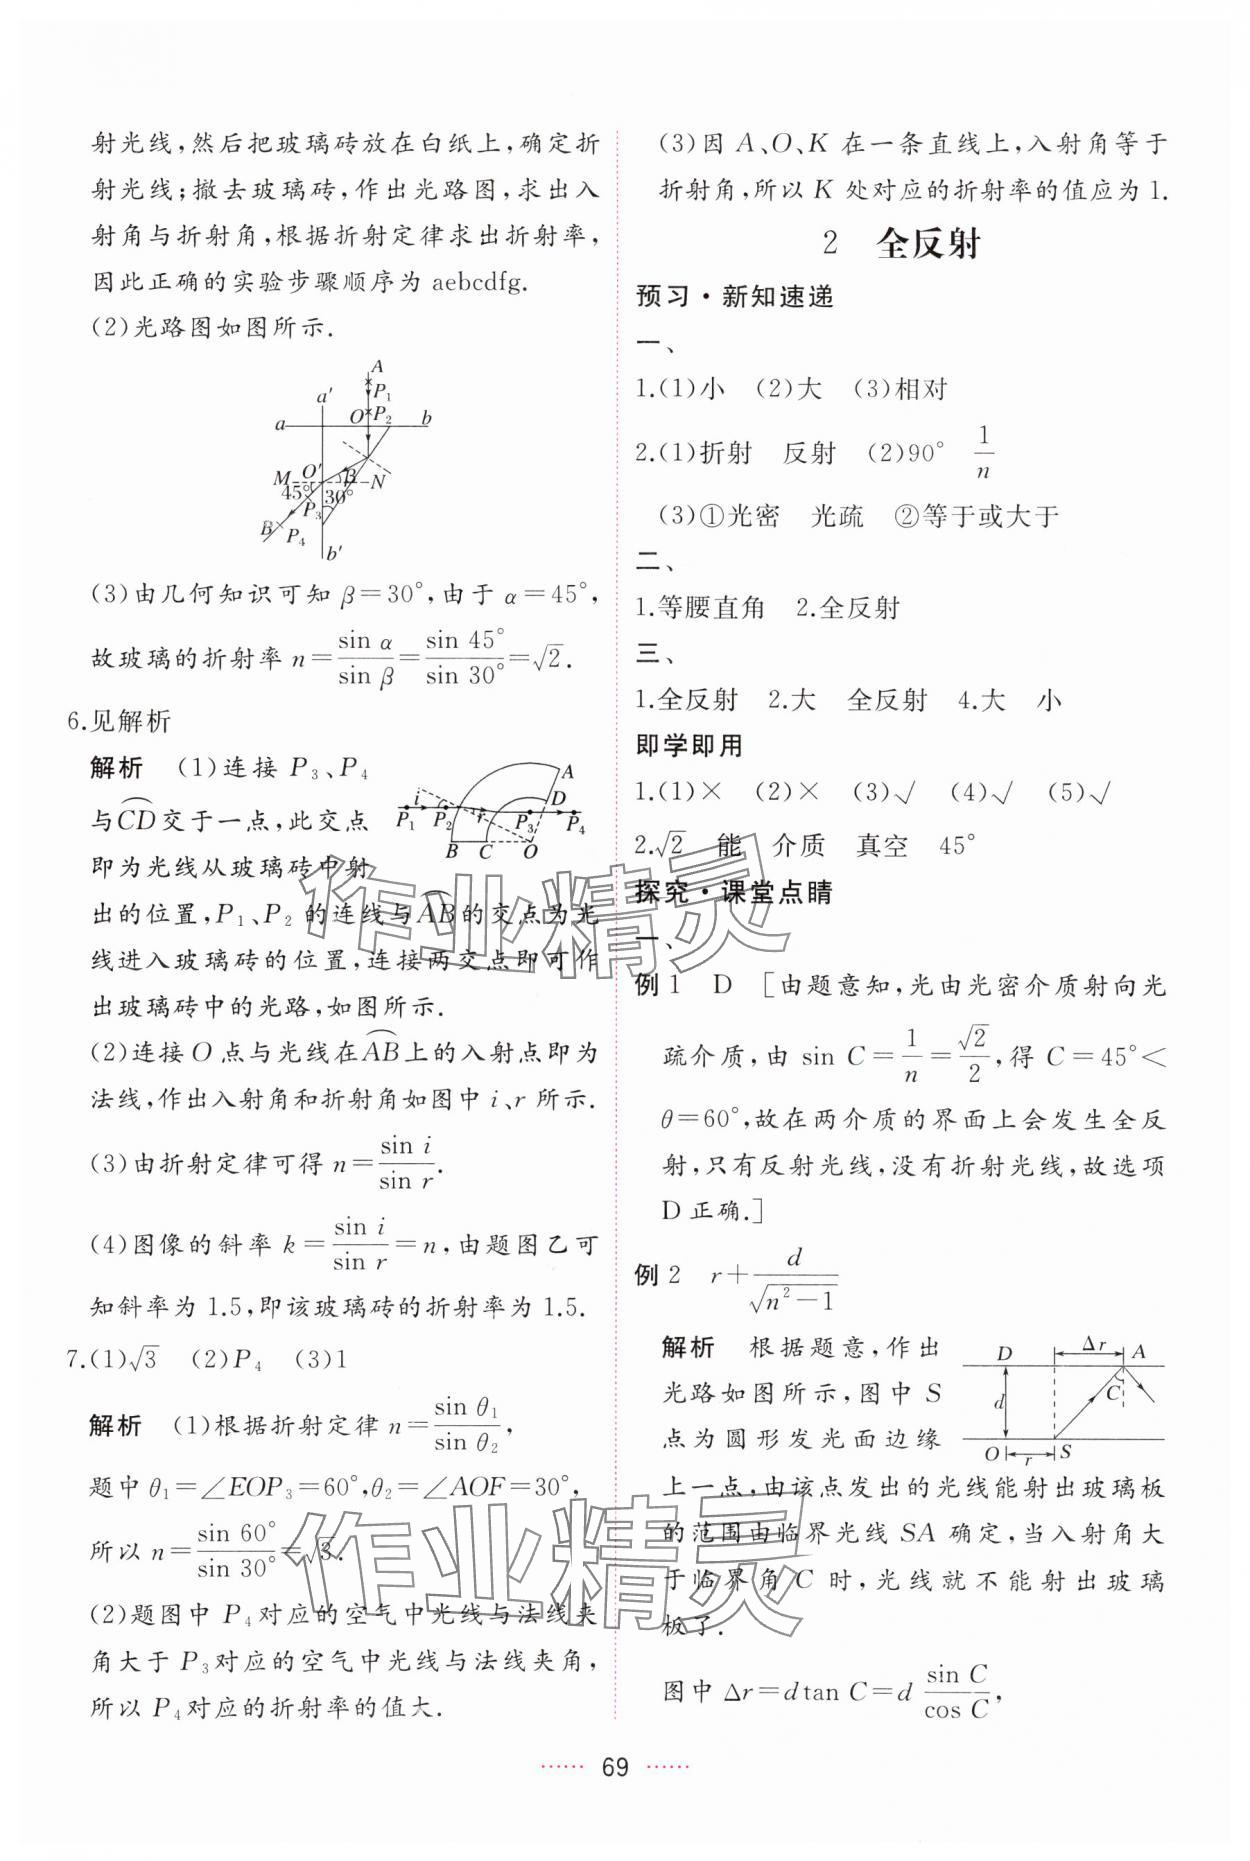 射光线,然后把玻璃砖放在白纸上,确定折
射光线;撤去玻璃砖,作出光路图,求出入
射角与折射角,根据折射定律求出折射率,
因此正确的实验步骤顺序为 aebcdfg.
(2)光路图如图所示.
A
P₁
a′
O
P₂
a
b
M
O′
β
N
45°
30°
P₃
B
P₄
b′
(3)由几何知识可知 β=30°,由于 α=45°,
故玻璃的折射率 n=sin α/sin β=sin 45°/sin 30°=√2.
6.见解析
解析 (1)连接 P₃、P₄
与CD交于一点,此交点
即为光线从玻璃砖中射
出的位置,P₁、P₂ 的连线与AB的交点为光
线进入玻璃砖的位置,连接两交点即可作
出玻璃砖中的光路,如图所示.
A
i
D
r
P₁ P₂ P₃ P₄
B C O
(2)连接 O 点与光线在AB上的入射点即为
法线,作出入射角和折射角如图中 i、r 所示.
(3)由折射定律可得 n=sin i/sin r.
(4)图像的斜率 k=sin i/sin r=n,由题图乙可
知斜率为 1.5,即该玻璃砖的折射率为 1.5.
7.(1)√3 (2)P₄ (3)1
解析 (1)根据折射定律 n=sin θ₁/sin θ₂,
题中 θ₁=∠EOP₃=60°,θ₂=∠AOF=30°,
所以 n=sin 60°/sin 30°=√3.
(2)题图中 P₄对应的空气中光线与法线夹
角大于 P₃对应的空气中光线与法线夹角,
所以 P₄对应的折射率的值大.
(3)因 A、O、K 在一条直线上,入射角等于
折射角,所以 K 处对应的折射率的值应为 1.
2 全反射
预习·新知速递
一、
1.(1)小 (2)大 (3)相对
2.(1)折射 反射 (2)90° 1/n
(3)①光密 光疏 ②等于或大于
二、
1.等腰直角 2.全反射
三、
1.全反射 2.大 全反射 4.大 小
即学即用
1.(1)× (2)× (3)√ (4)√ (5)√
2.√2 能 介质 真空 45°
探究·课堂点睛
一、
例1 D [由题意知,光由光密介质射向光
疏介质,由 sin C=1/n=√2/2,得 C=45°<
θ=60°,故在两介质的界面上会发生全反
射,只有反射光线,没有折射光线,故选项
D正确.]
例2 r+d/√(n²-1)
解析 根据题意,作出
光路如图所示,图中 S
点为圆形发光面边缘
D Δr A
d
C
O r S
上一点,由该点发出的光线能射出玻璃板
的范围由临界光线 SA 确定,当入射角大
于临界角 C 时,光线就不能射出玻璃
板了.
图中 Δr=dtan C=d sin C/cos C,
69
作业精灵
作业精灵